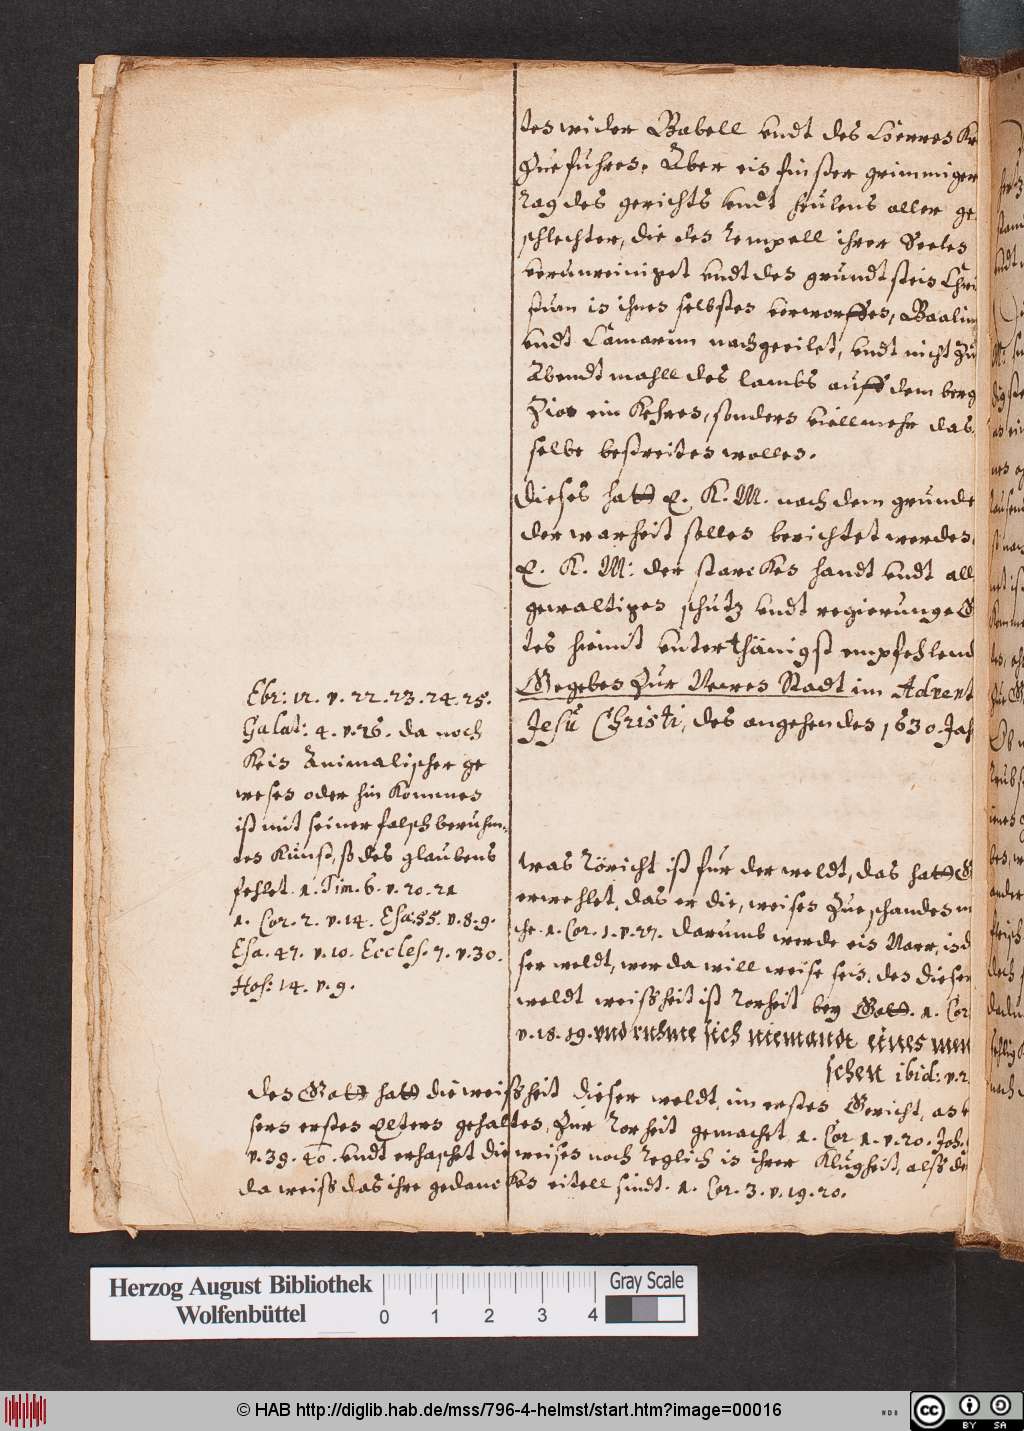 ten wider Babell vndt des Löerres
Zue führen. Aber ein finster grimmiger
tag des gerichts vndt heülens aller ge
schlechter, die den Tempell ihrer Seelen
verunreiniget vndt den grundtstein Chri
stum in ihnen selbsten verworffen, Baalim
vndt Camarim nachgeeilet, vndt nicht Zu
Abendtmahll des lambs auff dem berg
Zion ein Kehren, sondern viellmehr das
selbe bestreiten wollen.
Dieses hatt E. K. M. nach dem grunde
der warheit sollen berichtet werden.
E. K. M: der starcken handt vndt all
gewaltigen schutz vndt regierunge G
tes hiemit vnterthänigst empfehlend
Gegeben Zur Newen Stadt im Advent
Jesu Christi, des angehenden 1630. Jah
Ebr: 12. v. 22. 23. 24. 25.
Galat: 4. v. 26. da noch
Kein Animalischer ge
wesen oder hin Kommen
ist mit seiner falsch beruhm=
ten Kunst, so des glaubens
fehlet. 1. Tim. 6. v. 20. 21
1. Cor. 2. v. 14. Esa: 55. v. 8. 9.
Esa. 47. v. 10. Eccles. 7. v. 30.
Hos: 14. v. 9.
was Töricht ist fur der weldt, das hatt G
erwehlet, das er die, weisen Zue schanden m
che. 1. Cor. 1. v. 27. darumb werde ein Narr, in d
ser weldt, wer da will weise sein. den dieser
weldt weissheit ist Torheit bey Gott. 1. Cor
v. 18. 19. vnd ruhme sich niemandt eines men
schen ibid: v. 2
Den Gott hatt die weissheit dieser weldt, im ersten Gericht, an
sern ersten Eltern gehalten, Zur Torheit gemachet 1. Cor 1. v. 20. Joh.
v. 39. 40. vndt erhaschet die weisen noch Teglich in ihrer Klugheit, alss de
da weiss das ihre gedancken eitell sindt. 1. Cor. 3. v. 19. 20.
Herzog August Bibliothek
Wolfenbüttel
0 1 2 3 4
Gray Scale
© HAB http://diglib.hab.de/mss/796-4-helmst/start.htm?image=00016
cc BY SA